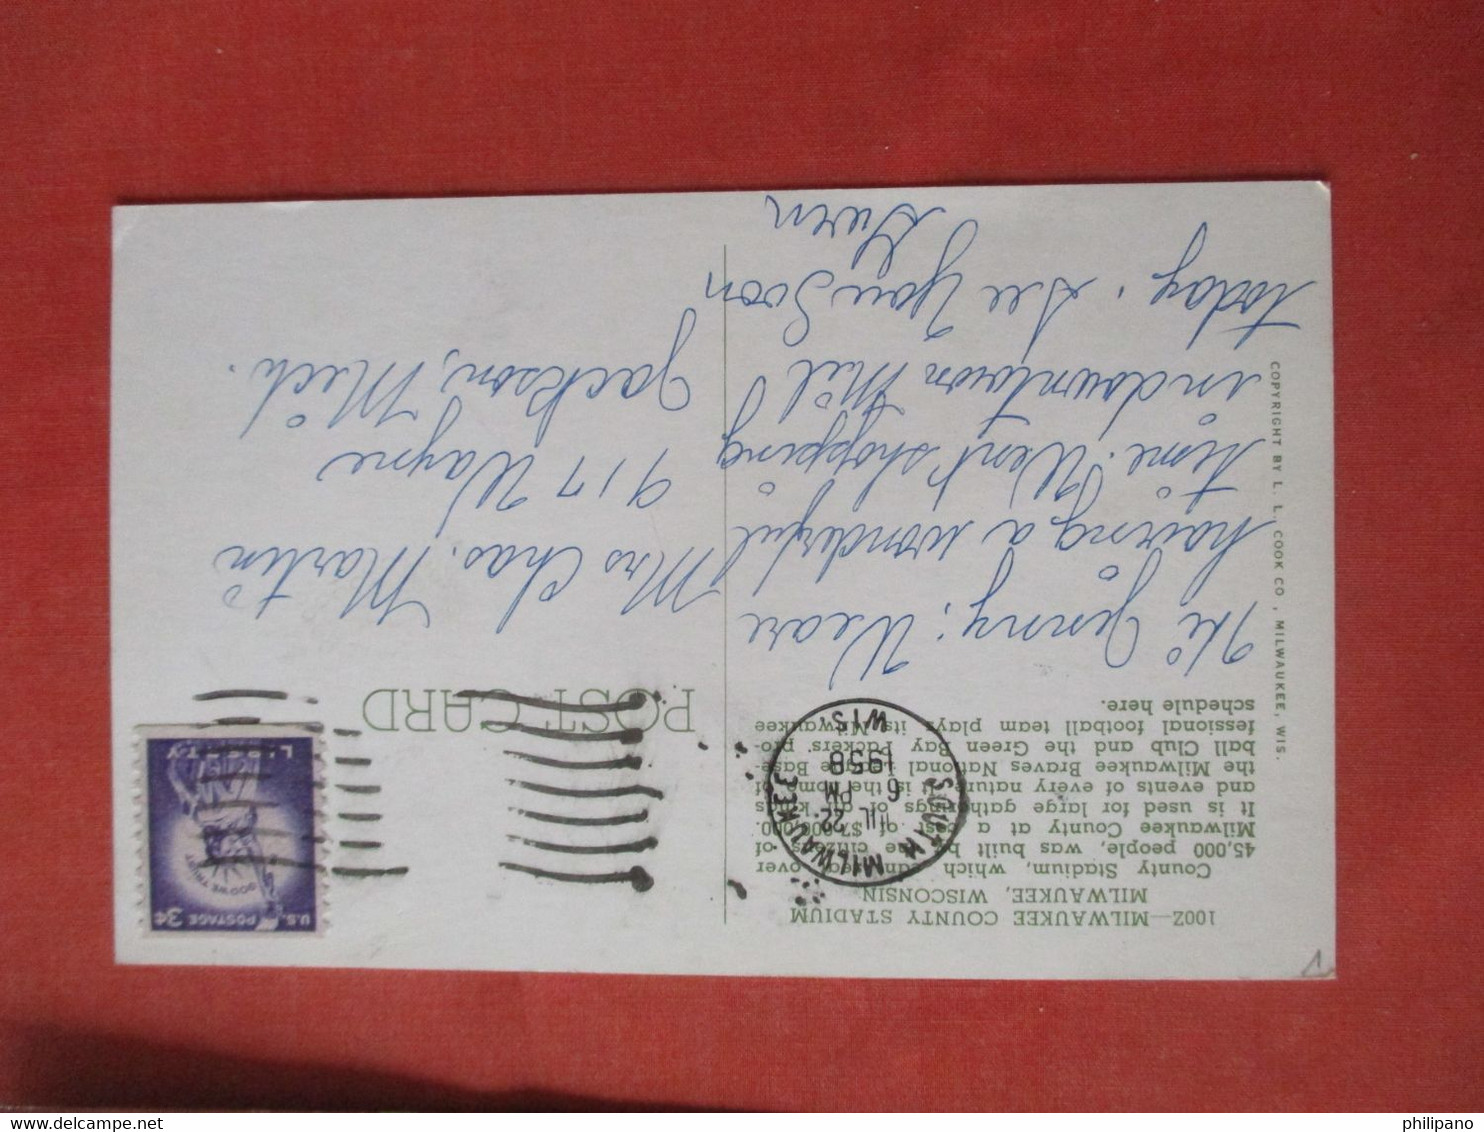 100Z—MILWAUKEE COUNTY STADIUM
MILWAUKEE, WISCONSIN
County Stadium, which can seat over
45,000 people, was built by the citizens of
Milwaukee County at a cost of $7,000,000.
It is used for large gatherings of all kinds
and events of every nature. It is the home of
the Milwaukee Braves National League Base-
ball Club and the Green Bay Packers' pro-
fessional football team plays its Milwaukee
schedule here.
SOUTH MILWAUKEE
JUL 22
6 PM
1958
WIS
Hi Jenny; We are
having a wonderful
time. Went shopping
in downtown Mil
today. See You Soon
Gwen
COPYRIGHT BY L. L. COOK CO., MILWAUKEE, WIS.
POST CARD
U.S. POSTAGE 3¢
IN GOD WE TRUST
LIBERTY
Mrs Chas. Martin
917 Wayne
Jackson, Mich.
philipano